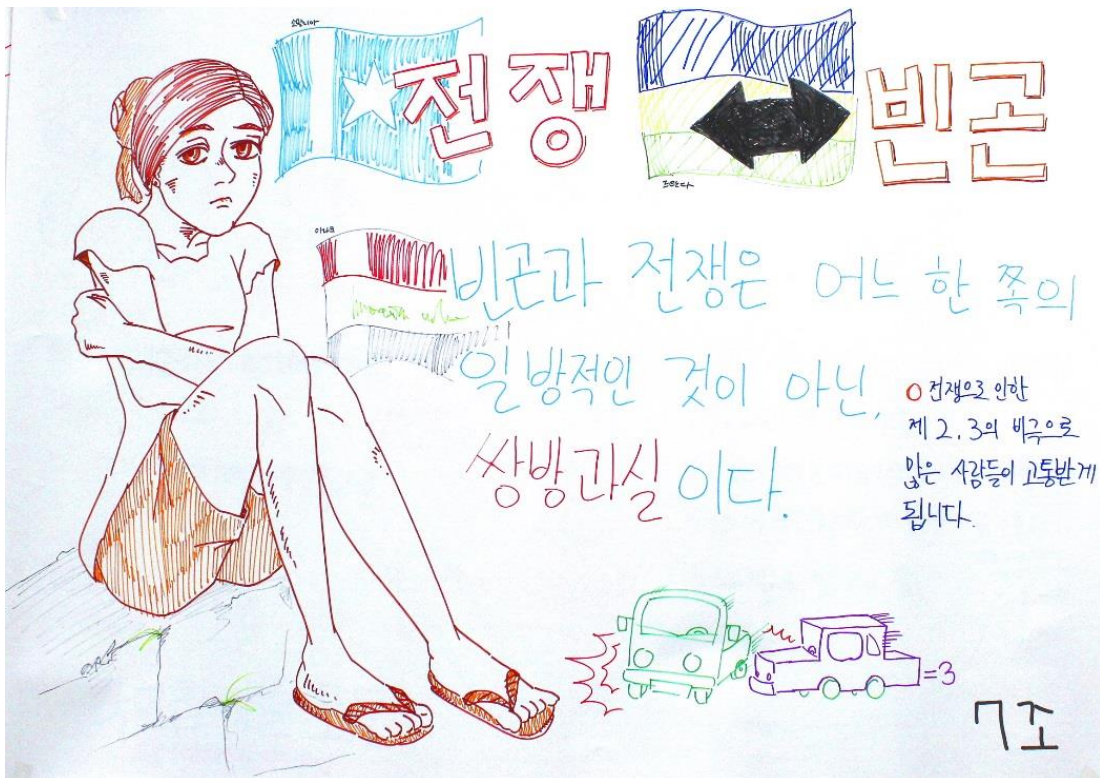 소말리아
전쟁
빈곤
르완다
빈곤과 전쟁은 어느 한 쪽의
일방적인 것이 아닌,
쌍방과실이다.
○ 전쟁으로 인한
제 2, 3의 비극으로
많은 사람들이 고통받게
됩니다.
=3
7조